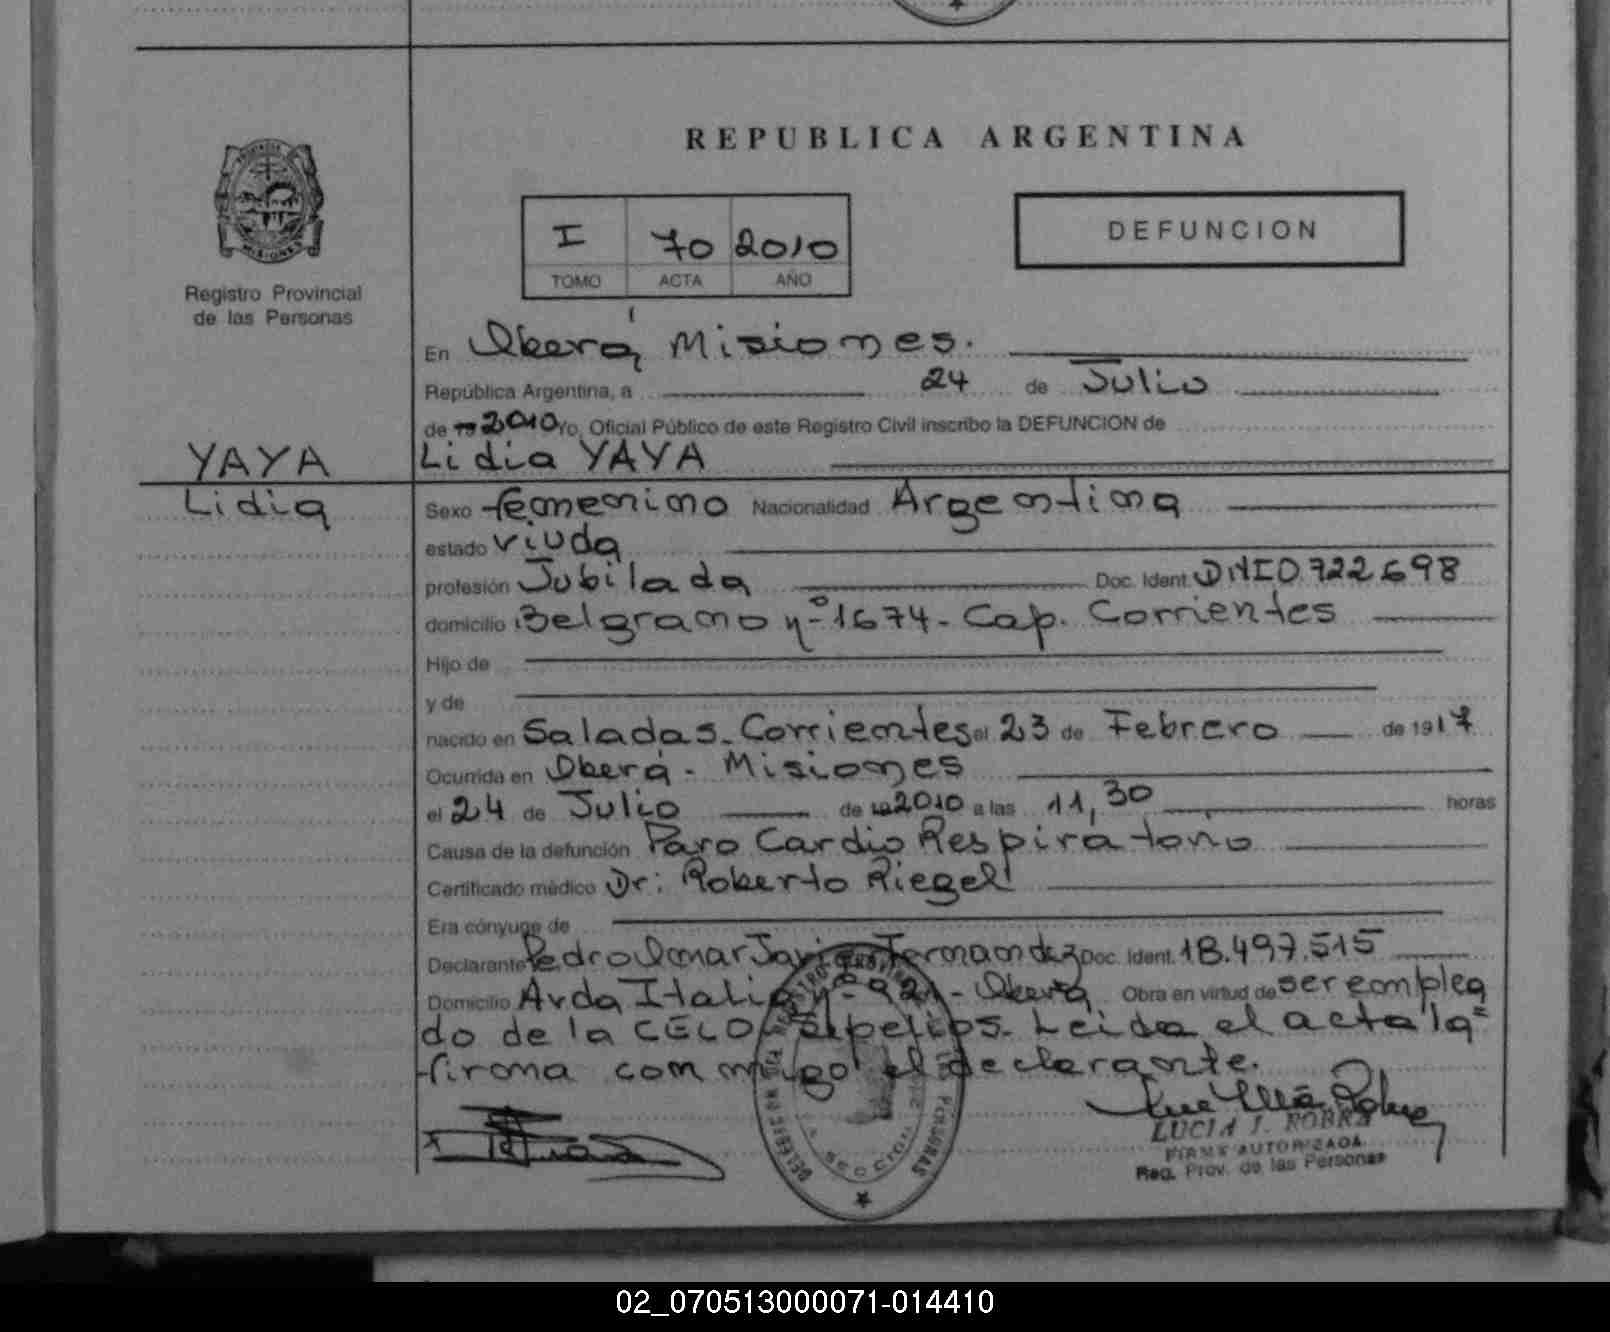 REPUBLICA ARGENTINA
I 70 2010
TOMO ACTA AÑO
DEFUNCION
MISIONES
Registro Provincial
de las Personas
En Oberá, Misiones.
República Argentina, a 24 de Julio
de 19 2010 Yo, Oficial Público de este Registro Civil inscribo la DEFUNCION de
YAYA
Lidia YAYA
Lidia
Sexo femenino Nacionalidad Argentina
estado viuda
profesión Jubilada Doc. Ident. DNI 0.722.698
domicilio Belgrano nº 1674 - Cap. Corrientes
Hijo de
y de
nacido en Saladas - Corrientes el 23 de Febrero de 1917
Ocurrida en Oberá - Misiones
el 24 de Julio de 19 2010 a las 11,30 horas
Causa de la defunción Paro Cardio Respiratorio
Certificado médico Dr: Roberto Riegel
Era cónyuge de
Declarante Pedro Omar Javier Fernandez Doc. Ident. 18.497.515
Domicilio Avda Italia nº - Oberá Obra en virtud de ser emplea
do de la CELO Sepelios. Leida el acta la=
firma conmigo el declarante.
LUCIA I. ROBRA
FIRMA AUTORIZADA
Reg. Prov. de las Personas
SECCION
PERSONAS
02_070513000071-014410